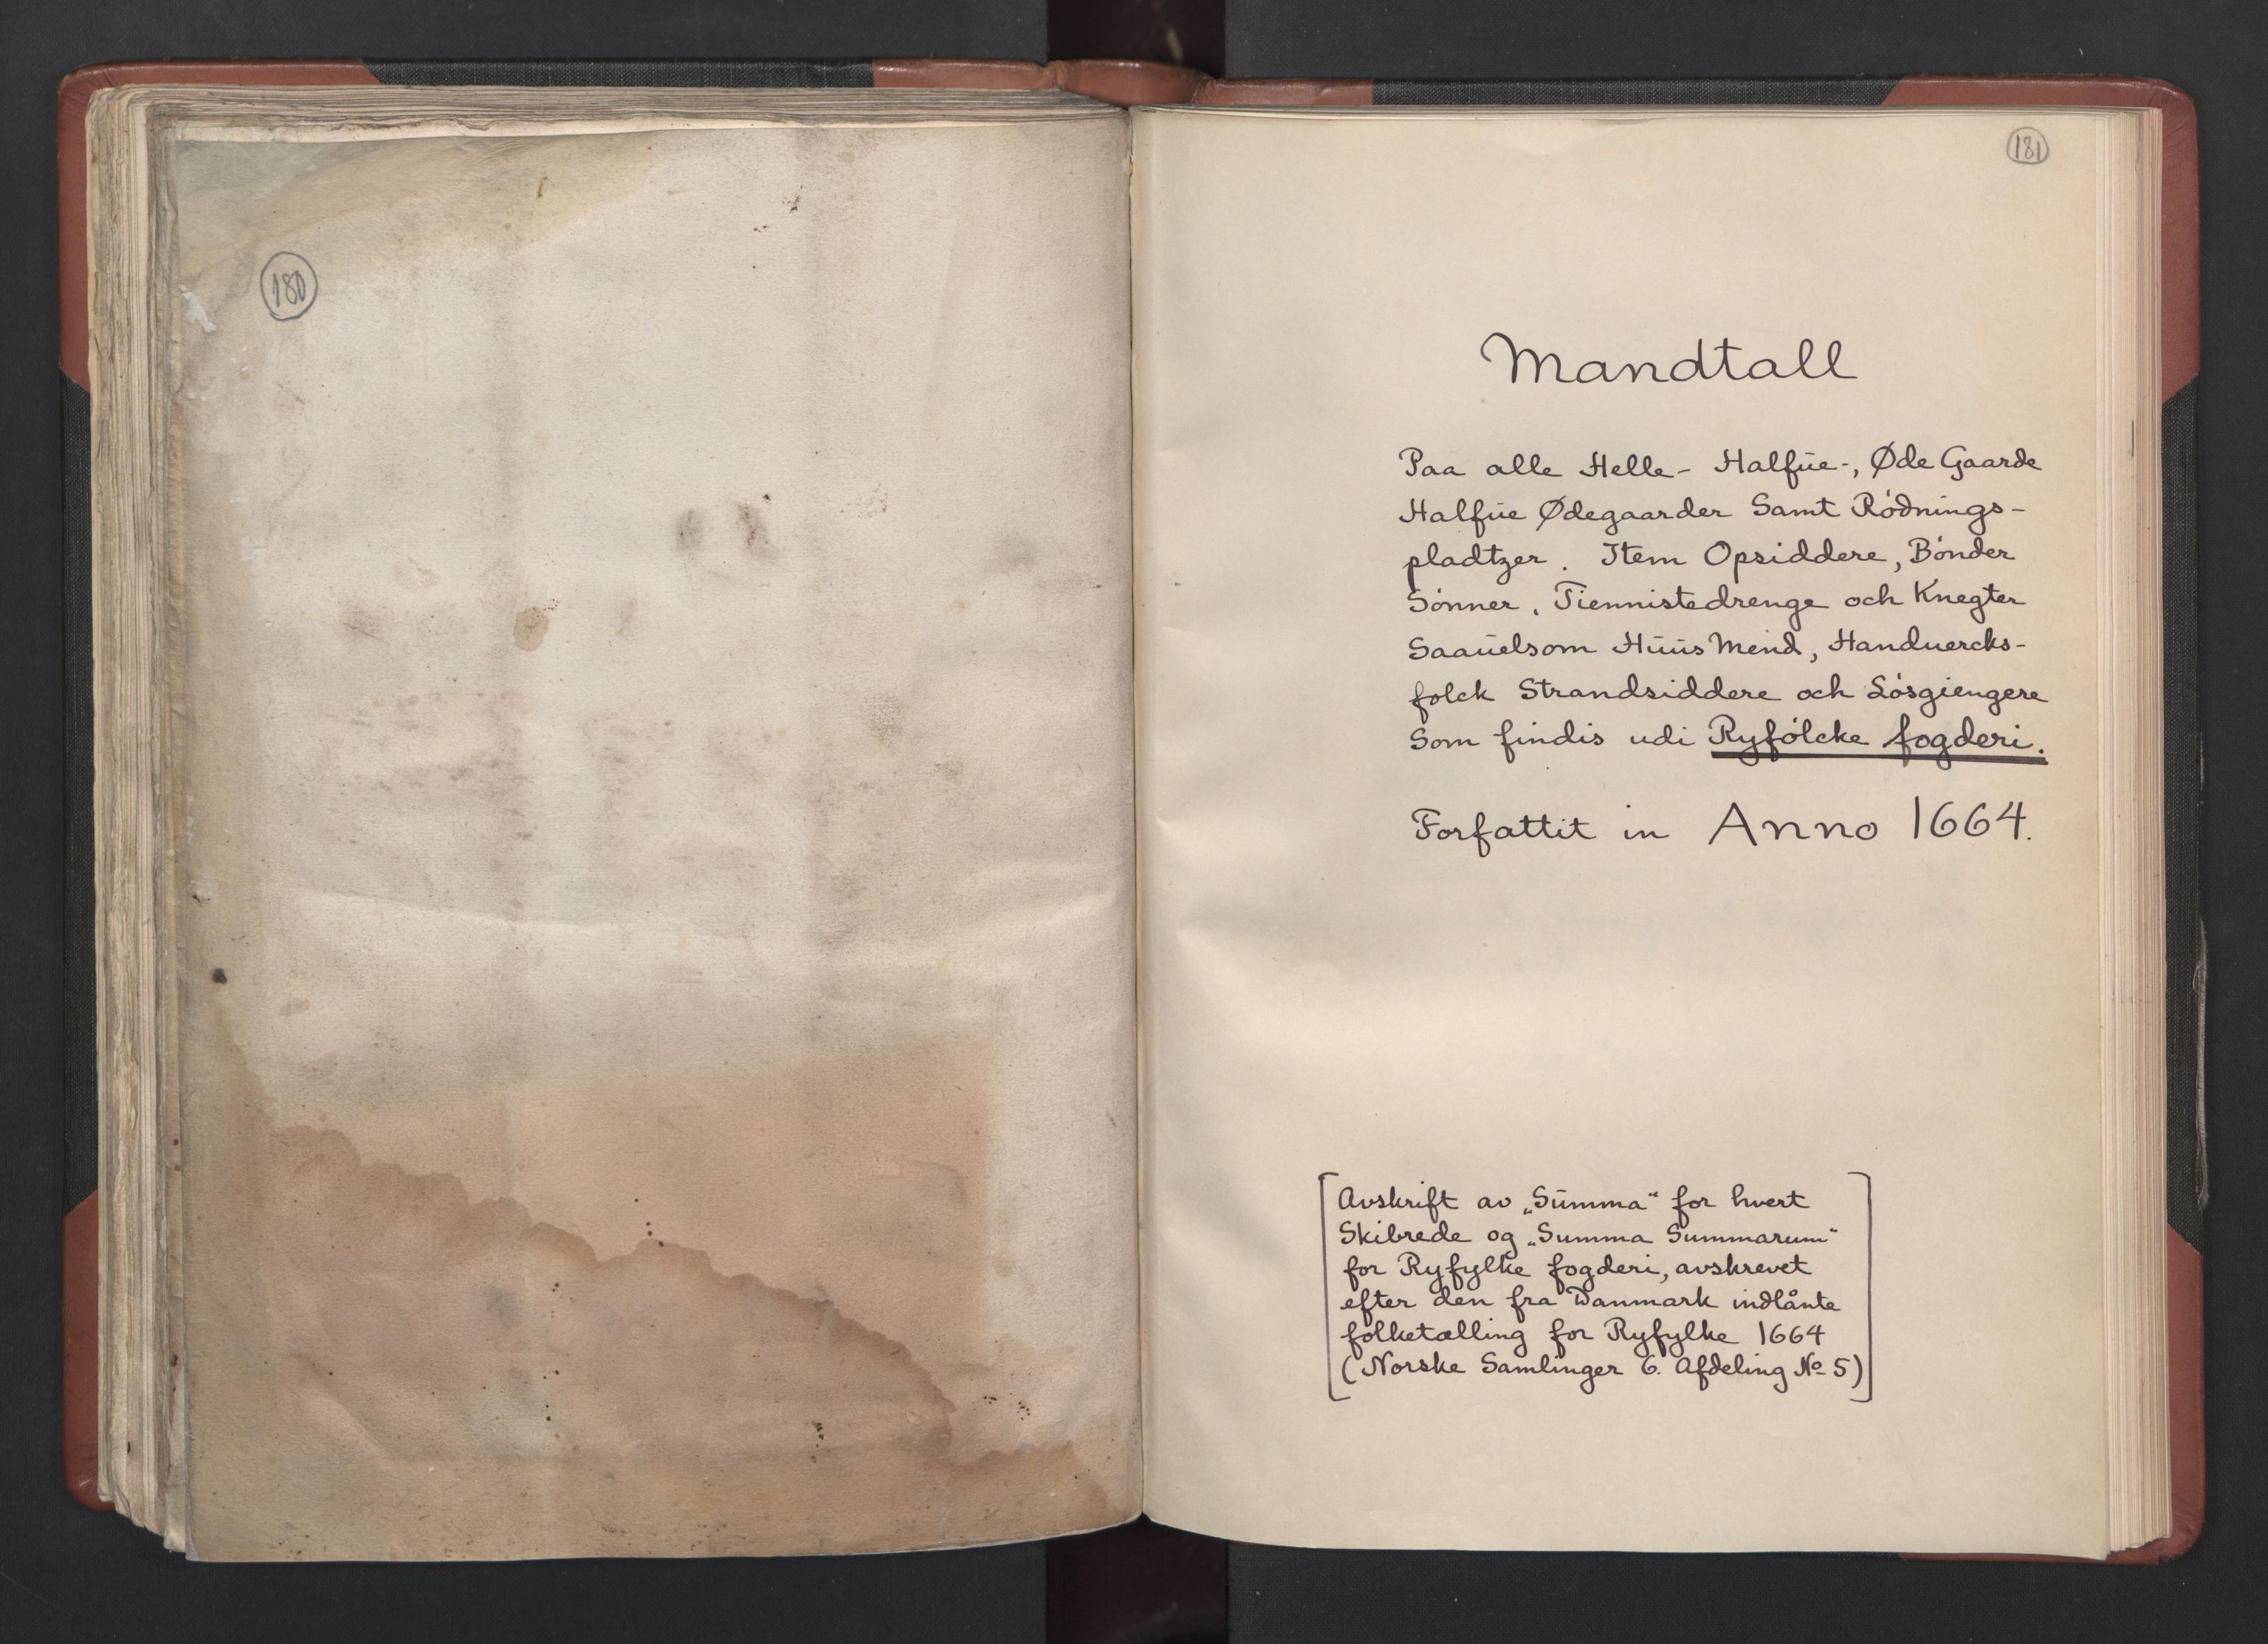 180
181
Mandtall
Paa alle Helle- Halfūe-, Øde Gaarde
Halfūe Ødegaarder Samt Ródnings-
pladtzer. Item Opsiddere, Bónder
Sónner, Tiennistedrenge och Knegter
Saaūelsom Hūūs Mend, Handuercks-
folck Strandsiddere och Lósgiengere
Som findis udi Ryfólcke fogderi.
Forfattit in Anno 1664.
[Avskrift av „Sūmma“ for hvert
Skibrede og „Summa Summarum“
for Ryfylke fogderi, avskrevet
efter den fra Danmark indlånte
folketælling for Ryfylke 1664
(Norske Samlinger 6. Afdeling No 5)]